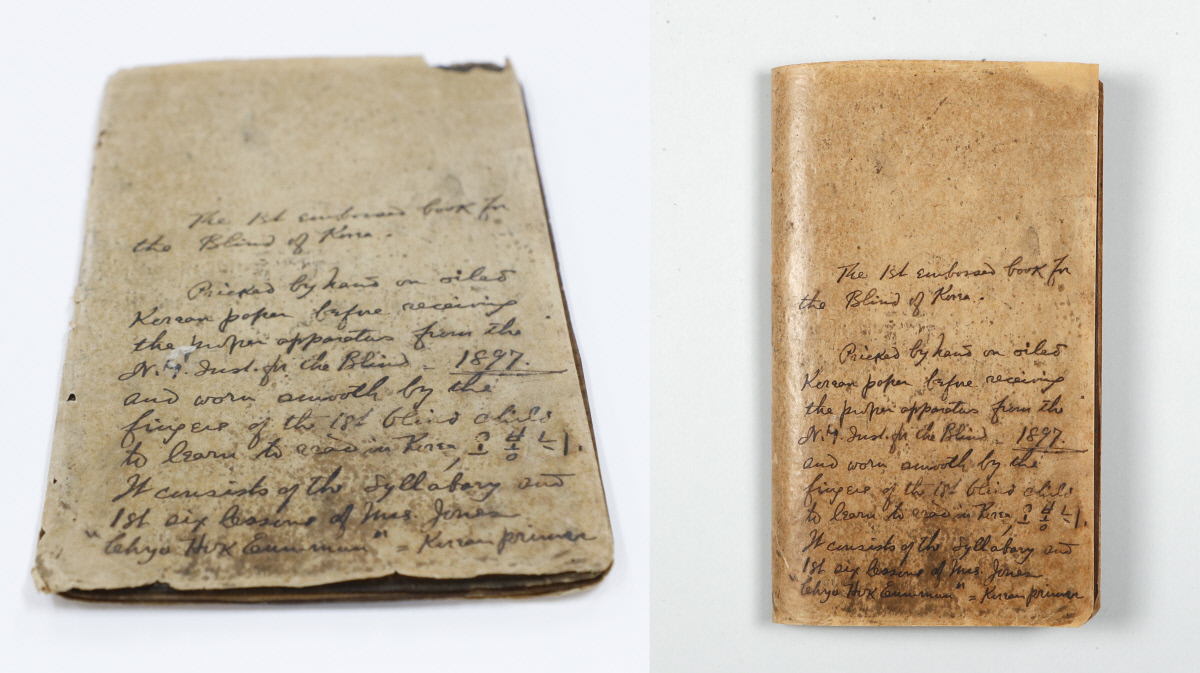 The 1st embossed book for
the Blind of Korea.
Pricked by hand on oiled
Korean paper before receiving
the proper apparatus from the
N.Y. Inst. for the Blind - 1897.
and worn smooth by the
fingers of the 1st blind child
to learn to read in Korea,
It consists of the Syllabary and
1st six lessons of Mrs. Jones
"Chyo Hok " = Korean primer
The 1st embossed book for
the Blind of Korea.
Pricked by hand on oiled
Korean paper before receiving
the proper apparatus from the
N.Y. Inst. for the Blind - 1897.
and worn smooth by the
fingers of the 1st blind child
to learn to read in Korea,
It consists of the Syllabary and
1st six lessons of Mrs. Jones
Chyo Hok " = Korean primer